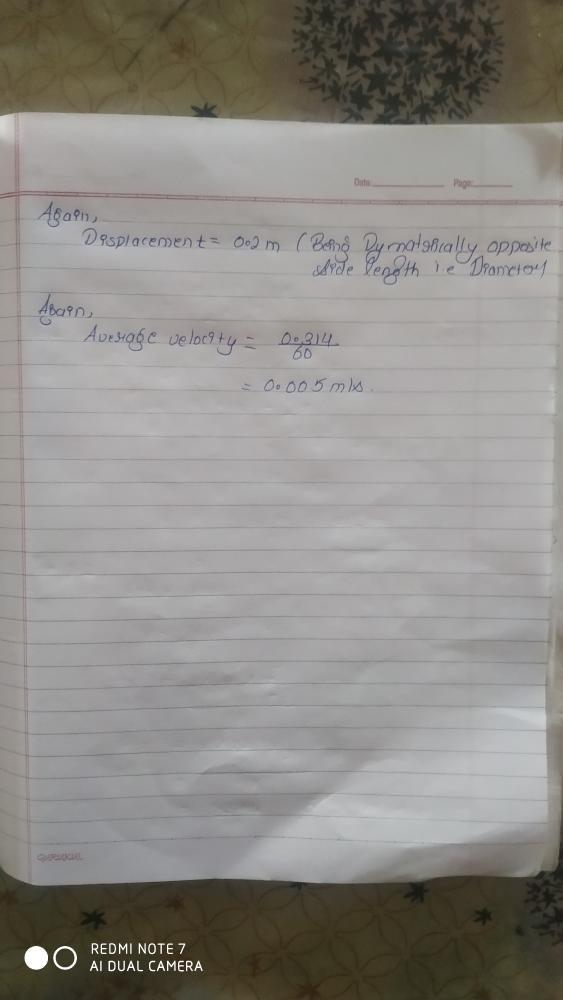 Date: Page:
Again,
Displacement = 0.2 m (Being Dymatrically opposite
side length i.e Diameter)
Again,
Average velocity = 0.314
60
= 0.005 m/s.
REDMI NOTE 7
AI DUAL CAMERA